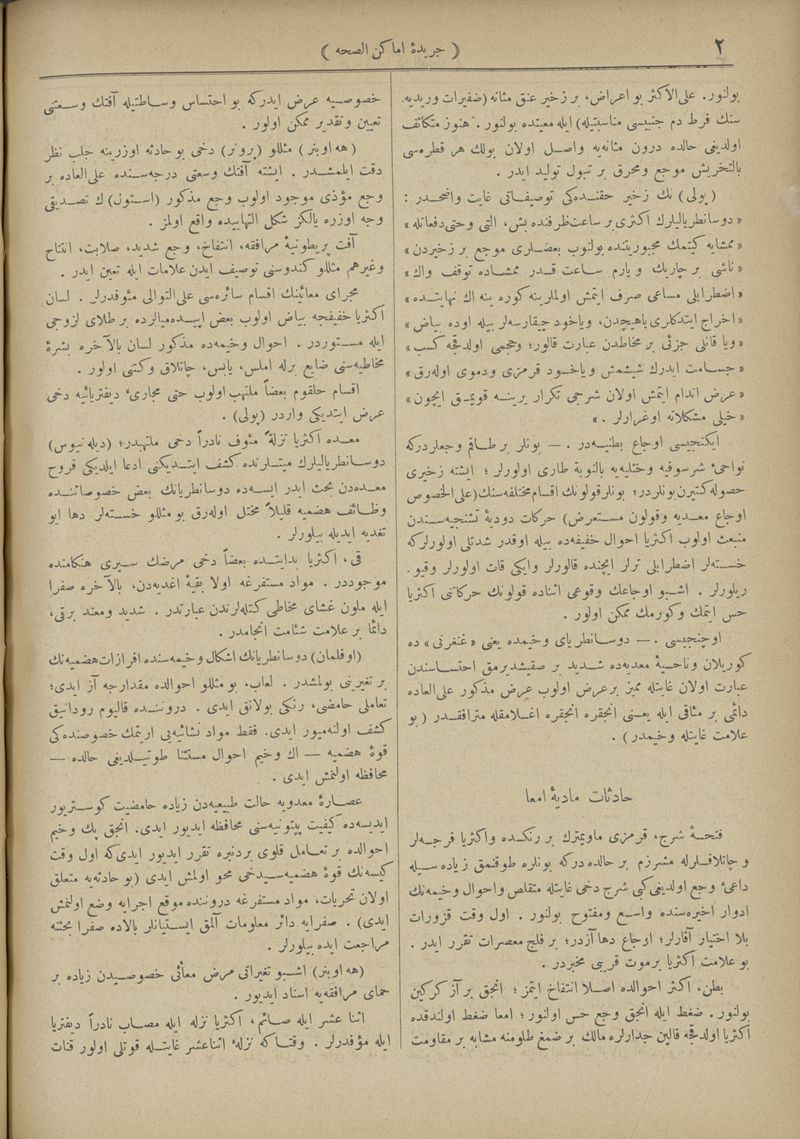 ٢
﴿ جريدۀ اماكن الصحه ﴾
بولنور. على الاكثر بو اعراض، بر زخير عنق مثانه (ضفيرات وريديه‌
سنك فرط دم جنبيسى مناسبتيله) ايله معيتده بولنور. هنوز متكاثف
اولديغى حالده درون مثانه‌يه واصل اولان بولك هر قطره‌سى
بالتخريش موجع ومحرق بر تبول توليد ايدر .
(پولى) نك زخير حقنده‌كى توصيفاتى غايت واضحدر :
« دوسانطريالیلرك اكثرى بر ساعت ظرفنده بش، التى وحتى دفعاتله »
« ممشايه كيتمك مجبوريتنده بولنوب بعضلرى موجع بر زخيردن »
« ناشى بر چاريك و يارم ساعت قدر ممشاده توقف واك »
« اضطرابلى مساعى صرف ايتمش اولملرينه كوره ينه اك نهايتده »
« اخراج ايتدكلرى ياهيچدن، وياخود چيقارسه‌لر بيله اوده بياض »
« ويا قانلى جزئى بر مخاطدن عبارت قالور؛ وحجمى اولدقجه كسب »
« جسامت ايدرك شيشمش وياخود قرمزى ودموى اوله‌رق »
« عرض اندام ايتمش اولان شرجى تكرار يرينه قويمق ايچون »
« خيلى مشكلاته اوغرارلر . »
ايكنجيسى اوجاع بطنيه‌در . — بونلر بر طاقم وجعلردركه
نواحئ شرسوفيه وخثليه‌يه بالنوبة طارى اولورلر ؛ ايشته زخيرى
حصوله كتيرن بونلردر؛ بونلر قولونك اقسام مختلفه‌سنك (على الخصوص
اوجاع معديه وقولون مستعرض) حركات دوديۀ تشنجيه‌سندن
منبعث اولوب اكثريا احوال خفيفه‌ده بيله اوقدر شدتلى اولورلركه
خسته‌لر اضطرابلى ترلر ايچنده قالورلر وايكى قات اولورلر وقيو.
ريلورلر . اشبو اوجاعك وقوعى اثناده قولونك حركاتنى اكثريا
حس ايتمك وكورمك ممكن اولور .
اوچنجيسى . — دوسانطرياى وخيمده يعنى « غنغرنى » ده
كوريلان وناحيۀ معديه‌ده شديد بر صقيشديرمق احتساسندن
عبارت اولان غايتله مميز بر عرض اولوب عرض مذكور على العاده
دائمى بر مثاقى ايله يعنى انجقره انجقره اغلامقله مترافقدر (بو
علامت غايتله وخيمدر) .
حادثات ماديۀ امعا
فتحۀ شرج، قرمزى ماويمترك بر رنكده واكثريا فرجه‌لر
و چاتلاقلرله مشرزم بر حالده دركه بونلره طوقنمق زياده‌سيله
داعئ وجع اولديغى كبى شرج دخى غايتله متقلص واحوال وخيمه‌نك
ادوار اخيره‌سنده واسع و مفتوح بولنور . اول وقت قزورات
بلا اختيار آقارلر؛ اوجاع دها آزدر؛ بر فلج معصرات تقرر ايدر .
بو علامت اكثريا بر موت قريبى مخبردر .
بطن، اكثر احوالده اصلا انتفاخ ايتمز ؛ انجق بر آز كركين
بولنور . ضغط ايله انجق وجع حس اولنور ؛ امعا ضغط اولندقده
اكثريا اولدقجه قالين جدارلره مالك بر ضمغ طلومنه مشابه بر مقاومت
خصوصيه عرض ايدركه بو احتساس وساطتيله آفتك وسعتنى
تعيين و تقدير ممكن اولور .
(هه اوبنر) مثللو (برونر) دخى بو حادثه اوزرينه جلب نظر
دقت ايلمشدر . ايشته آفتك وسعتى درجه‌سنده على العاده بر
وجع مؤذى موجود اولوب وجع مذكور (استون) ك تصديقى
وجه اوزره يالكز شكل التهابيده واقع اولمز .
آفت پريطونيۀ مرافقه، انتفاخ، وجع شديد، صلابت، انتتاح
وغيرهم مثللو كندوسنى توصيف ايدن علامات ايله تعين ايدر .
مجراى معائينك اقسام سائره‌سى على التوالى مئوفدرلر . لسان
اكثريا خفيفجه بياض اولوب بعض اپيده‌ميالرده بر طلاى لزوجى
ايله مستوردر . احوال وخيمه‌ده مذكور لسان بالآخره بشرۀ
مخاطيه‌سنى ضايع برله املس، يابس، چاتلاق وكتى اولور .
اقسام حلقوم بعضاً ملتهب اولوب حتى مجارئ ديفتريائيه دخى
عرض ايتديكى واردر (پولى) .
معده اكثريا نزلةً مئوف نادراً دخى ملتهبدر؛ (ديله نيوس)
دوسانطريالیلرك ميتلرنده كشف ايتديكنى ادعا ايلديكى قروح
معده‌دن بحث ايدر ايسه‌ده دوسانطريانك بعض خصوصاتنده
وظائف هضميه قليلاً مختل اوله‌رق بو مثللو خسته‌لر دها ايو
تغديه ايديله بيلورلر .
قى، اكثريا بدايتده بعضاً دخى مرضك سيرى هنكامنده
موجوددر . مواد مستفرغه اولا بقيۀ اغديه‌دن، بالآخره صفرا
ايله ملون غشاى مخاطى كتله‌لرندن عبارتدر . شديد ومعند برقى،
دائما بر علامت شئامت انجامدر .
(اوفلمان) دوسانطريانك اشكال وخيمه‌سنده افرازات هضميه‌نك
بر تغيرينى بولمشدر . لعاب، بو مثللو احوالده مقدارجه آز ايدى؛
تعاملى حامضى، رنكى بولانق ايدى . دروننده قاليوم رودانيق
كشف اولنه‌ميور ايدى. فقط مواد نشائيه‌يى اريتمك خصوصنده‌كى
قوۀ هضميه — اك وخيم احوال مستثنا طوتيلديغى حالده —
محافظه اولنمش ايدى .
عصارۀ معدويه حالت طبيعيه‌دن زياده حامضيت كوستريور
ايديسه‌ده كيفيت پپتونيه‌سنى محافظه ايديور ايدى. انجق پك وخيم
احوالده بر تعامل قلوى بردنبره تقرر ايديور ايدى‌كه اول وقت
كيسه‌نك قوۀ هضميه‌سيدخى محو اولمش ايدى (بو حادثه‌يه متعلق
اولان تحريات، مواد مستفرغه دروننده موقع اجرايه وضع اولنمش
ايدى) . صفرايه دائر معلومات آلمق ايستيانلر بالاده صفرا بحثنه
مراجعت ايده بيلورلر .
(هه اوبنر) اشبو تغيراتى مرض معائى خصوصيدن زياده بر
حماى مرافقه‌يه اسناد ايديور .
اثنا عشر ايله صائم، اكثريا نزله ايله مصاب نادراً ديفتريا
ايله مؤفدرلر . وقتاكه نزلۀ اثناعشر غايتله قوتلى اولور قنات